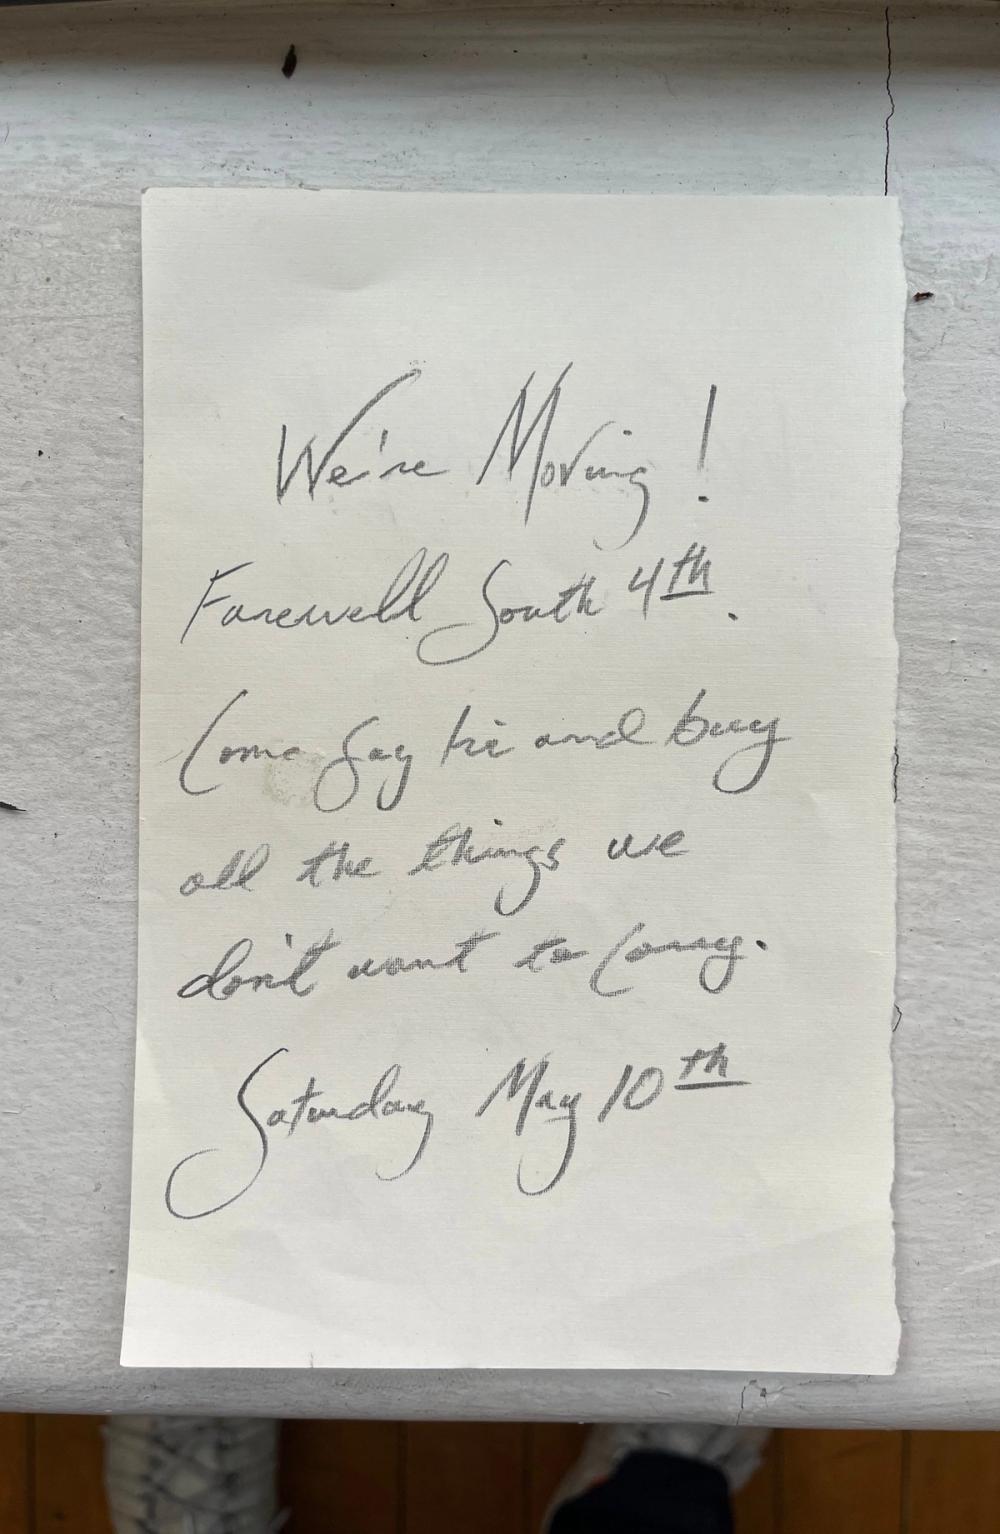 We're Moving!
Farewell South 4th.
Come say hi and buy
all the things we
don't want to carry.
Saturday May 10th